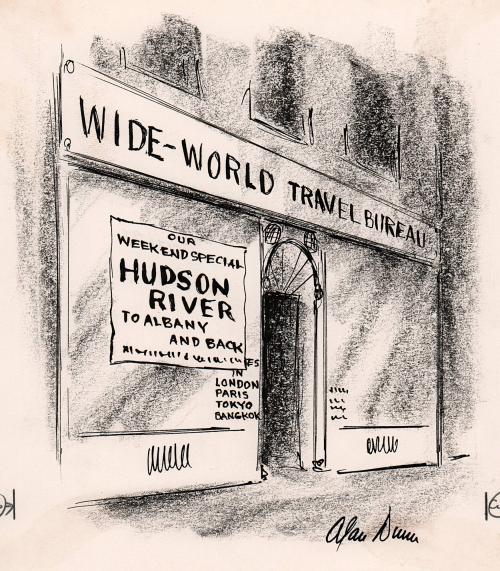 WIDE-WORLD TRAVEL BUREAU
OUR
WEEKEND SPECIAL
HUDSON
RIVER
TO ALBANY
AND BACK
ES
IN
LONDON
PARIS
TOKYO
BANGKOK
Alan Dunn